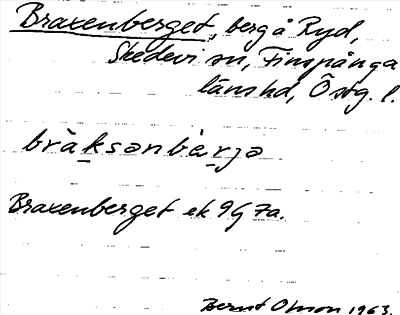 Braxenberget, berg å Ryd,
Skedevi sn, Finspånga
länshd, Östg. l.
bràksənbæ̀rjə
Braxenberget ek 9G 7a.
Bernt Olson 1963.